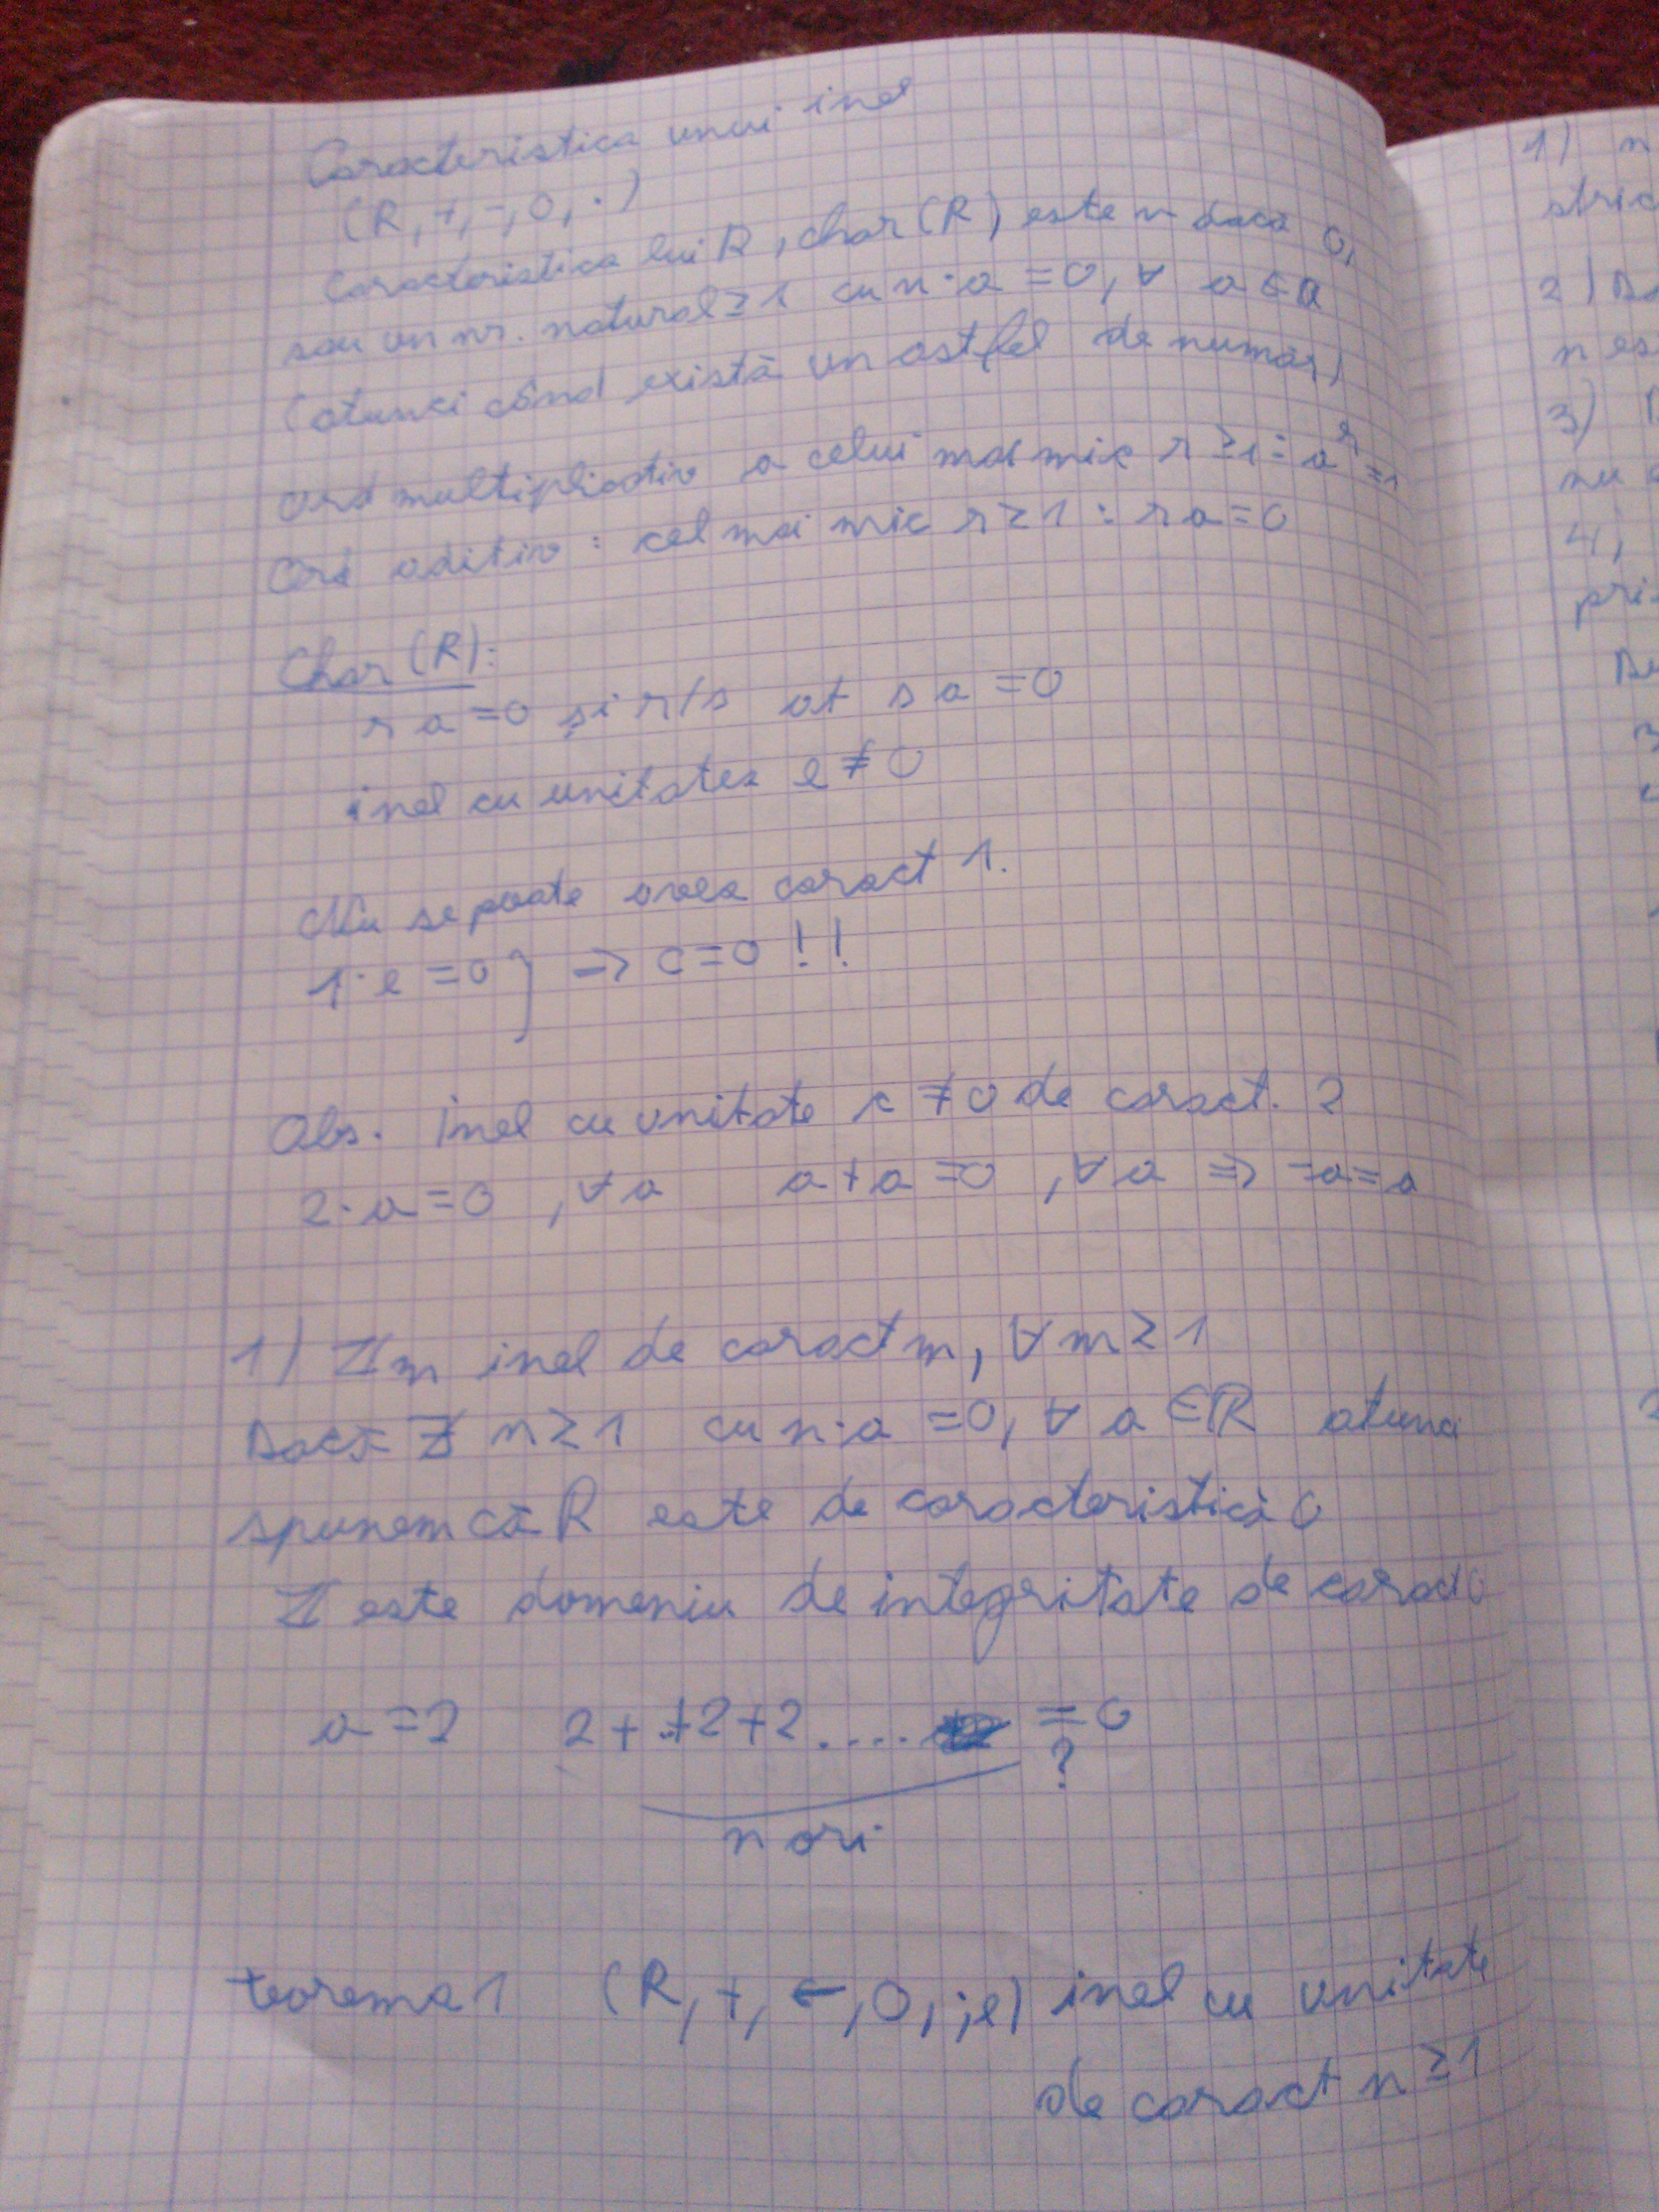 Caracteristica unui inel
(R, +, -, 0, ·)
Caracteristica lui R, char(R) este n daca 0,
sau un nr. natural ≥ 1 cu n·a = 0, ∀ a ∈ R
(atunci când există un astfel de numar)
Ord multiplicativ a celui mai mic r ≥ 1 : a^r = 1
Ord aditiv : cel mai mic r ≥ 1 : r a = 0
Char (R):
r a = 0 și r/s at s a = 0
inel cu unitatea e ≠ 0
Nu se poate avea caract 1.
1·e = 0 } => e = 0 !!
Obs. Inel cu unitate e ≠ 0 de caract. 2
2·a = 0 , ∀ a a + a = 0 , ∀ a => -a = a
1) ℤm inel de caract m, ∀ m ≥ 1
Dacă ∄ n ≥ 1 cu n·a = 0, ∀ a ∈ R atunci
spunem că R este de caracteristică 0
ℤ este domeniu de integritate de caract 0
a = 2 2 + + 2 + 2 .... = 0
?
n ori
teorema 1 (R, +, -, 0, ·, e) inel cu unitate
de caract n ≥ 1
1) n
stric
2) Da
n es
3) D
nu
4)
pri
3